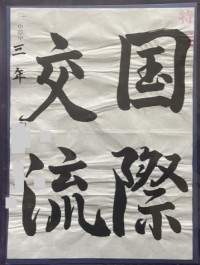 国際
交流
三年